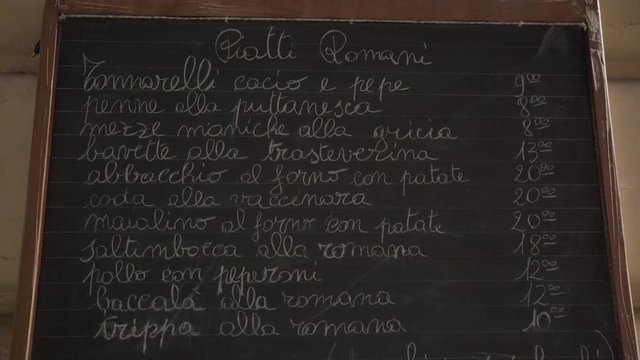 Piatti Romani
Tonnarelli cacio e pepe 9⁰⁰
penne alla puttanesca 8⁰⁰
mezze maniche alla gricia 8⁰⁰
bavette alla trasteverina 13⁰⁰
abbacchio al forno con patate 20⁰⁰
coda alla vaccinara 20⁰⁰
maialino al forno con patate 20⁰⁰
saltimbocca alla romana 18⁰⁰
pollo con peperoni 12⁰⁰
baccalà alla romana 12⁰⁰
trippa alla romana 10⁰⁰